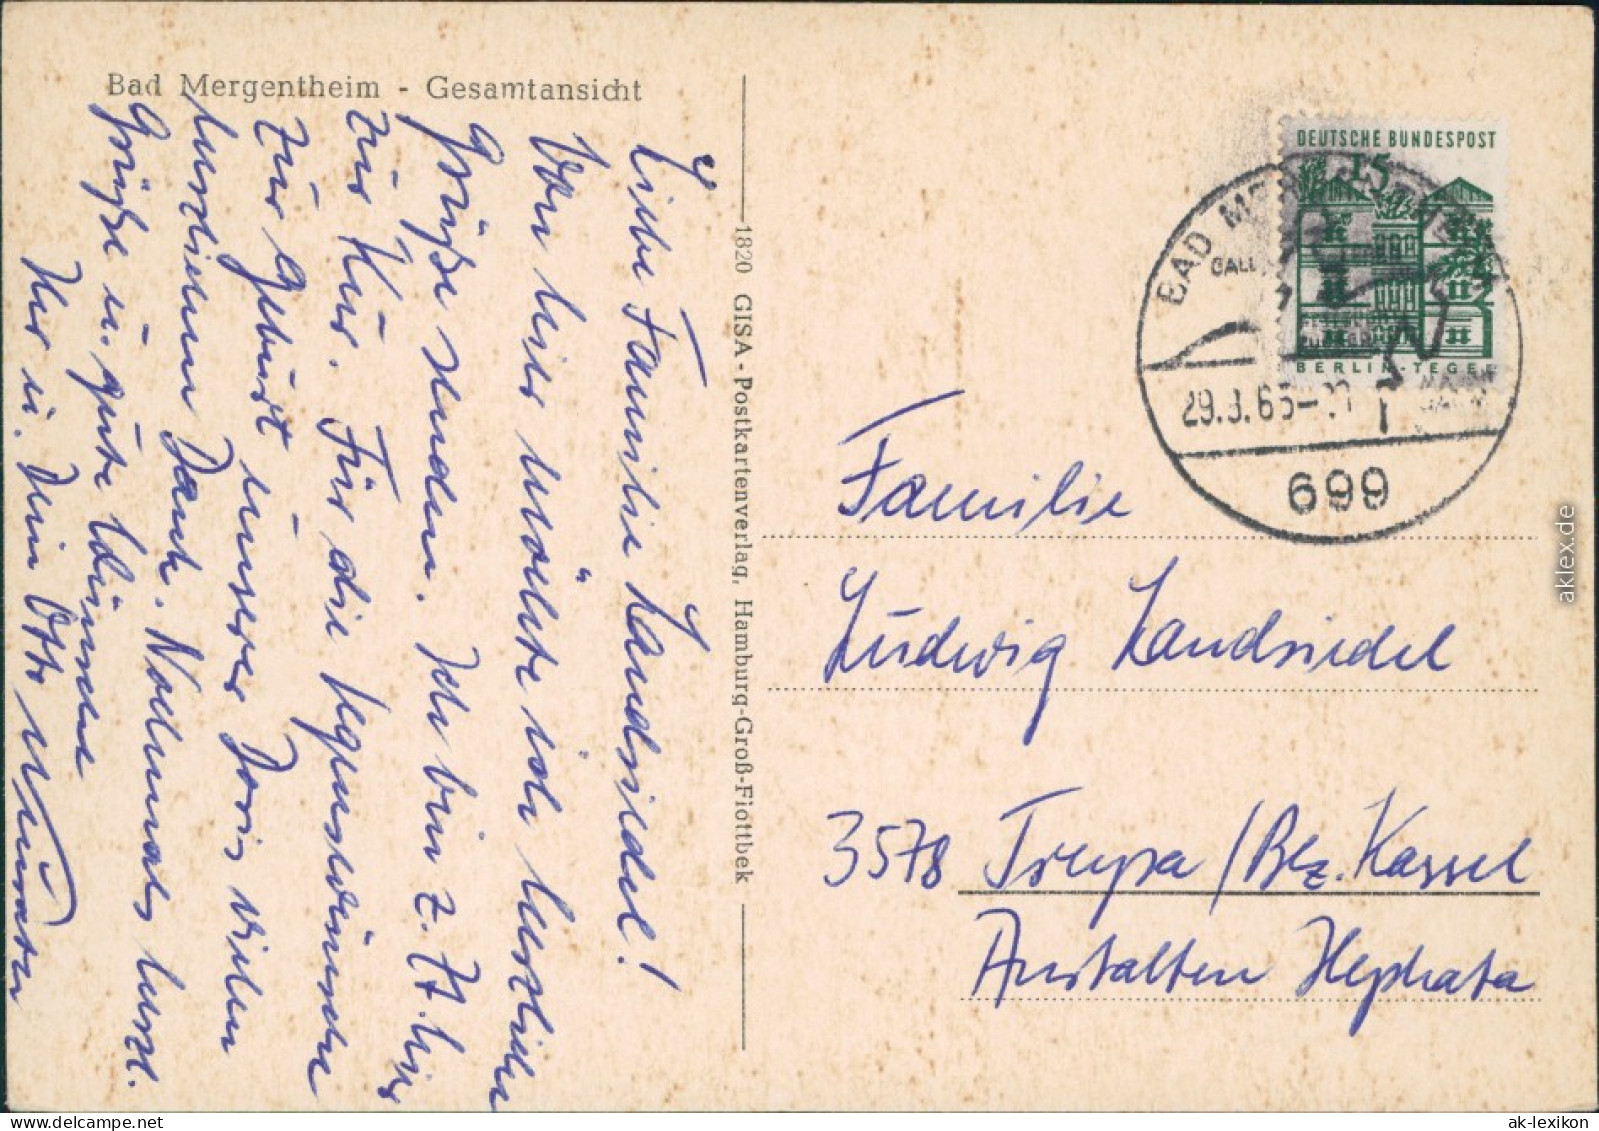 Bad Mergentheim - Gesamtansicht
Liebe Familie Landsiedel!
Von hier möchte ich herzliche
Grüße senden. Ich bin z. Zt. hier
zur Kur. Für die Segenswünsche
zur Geburt unserer Doris vielen
herzlichen Dank. Nochmals herzl.
Grüße u. gute Wünsche
Ihr u. Dein Otto
1820 GISA - Postkartenverlag, Hamburg-Groß-Flottbek
DEUTSCHE BUNDESPOST
15
BERLIN-TEGEL
BAD MERGENTHEIM
29.3.65
699
Familie
Ludwig Landsiedel
3578 Treysa / Bez. Kassel
Anstalten Hephata
aklex.de
www.delcampe.net
ak-lexikon